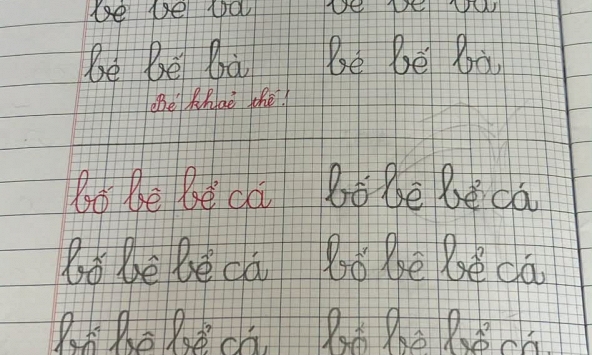 bé bế bà bé bế bà
bé bế bà bé bế bà
Bé khoẻ thế!
bố bê bể cá bố bê bể cá
bố bê bể cá bố bê bể cá
bố bê bể cá bố bê bể cá